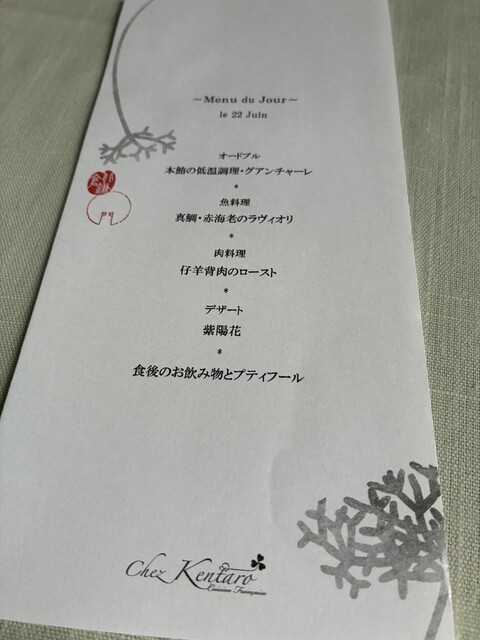 ~Menu du Jour~
le 22 Juin
オードブル
本鮪の低温調理・グアンチャーレ
*
魚料理
真鯛・赤海老のラヴィオリ
*
肉料理
仔羊背肉のロースト
*
デザート
紫陽花
*
食後のお飲み物とプティフール
Chez Kentaro
Cuisine Française